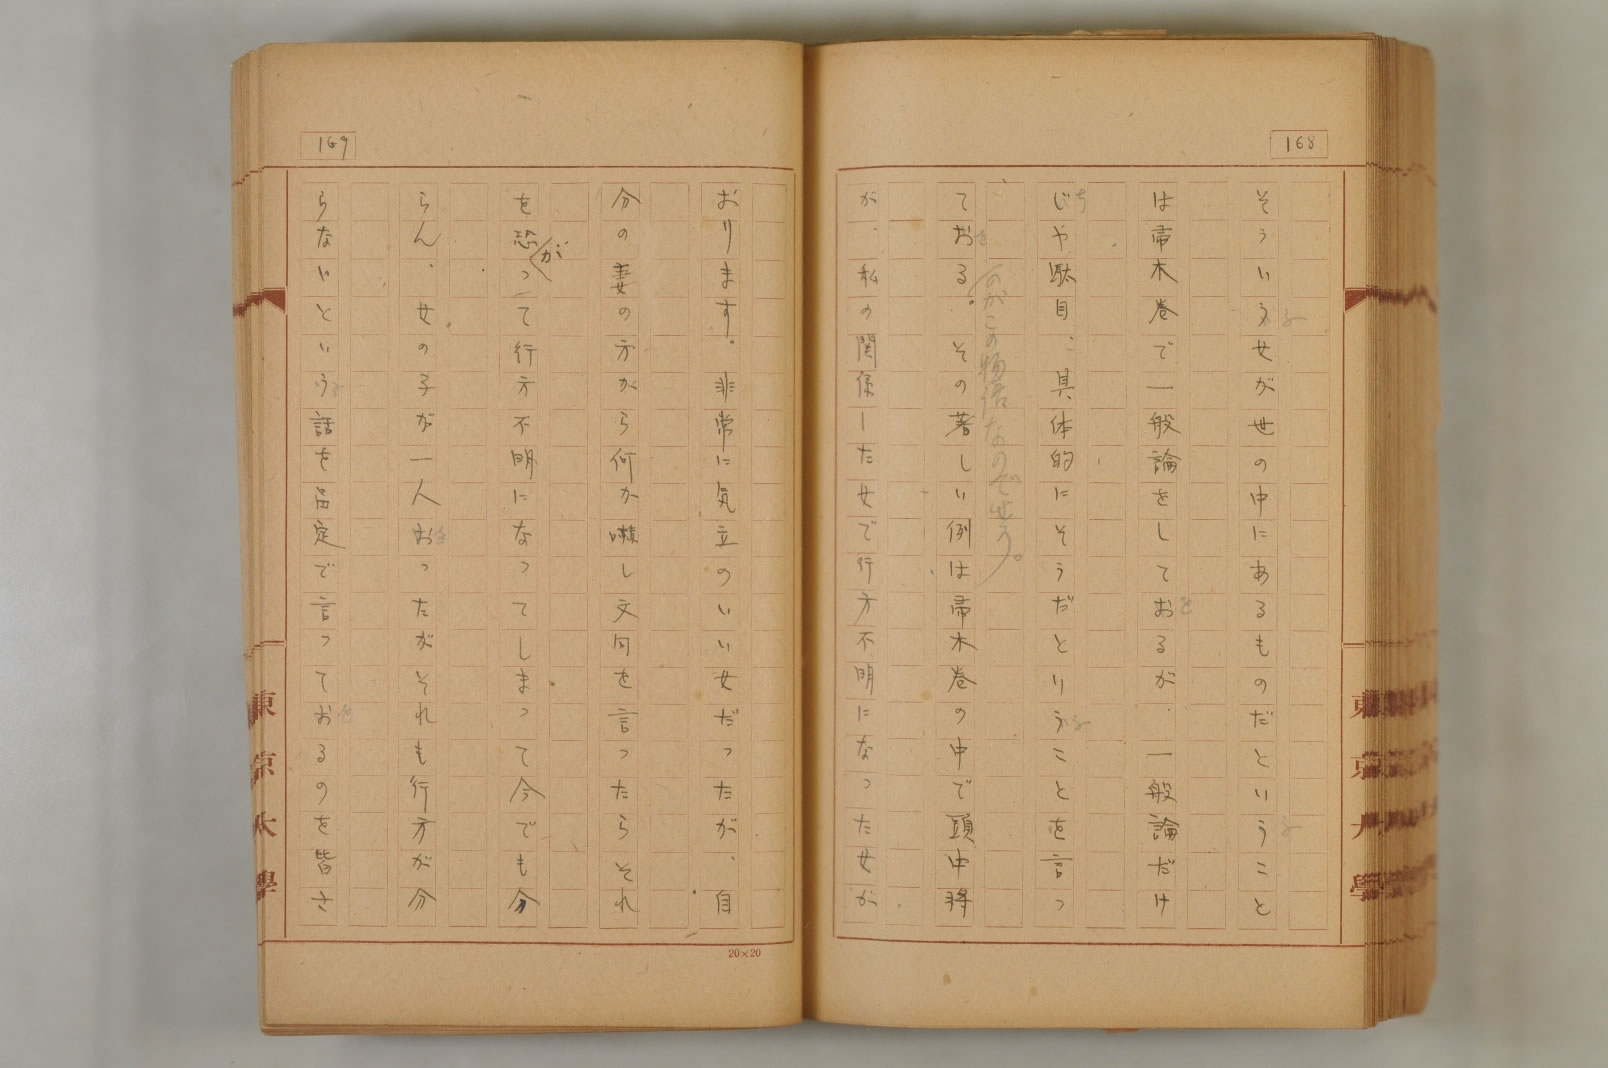 168
そういう女が世の中にあるものだということ
は帚木巻で一般論をしておるが、一般論だけ
じや駄目、具体的にそうだということを言つ
ておる。その著しい例は帚木巻の中で頭中将
のがこの物語なのでせう。
が、私の関係した女で行方不明になつた女が
169
おります。非常に気立のいい女だつたが、自
分の妻の方から何か嚇し文句を言つたらそれ
を恐がつて行方不明になつてしまつて今でも分
らん、女の子が一人おつたがそれも行方が分
らないという話を品定で言つておるのを皆さ
20×20
東京大學
東京大學